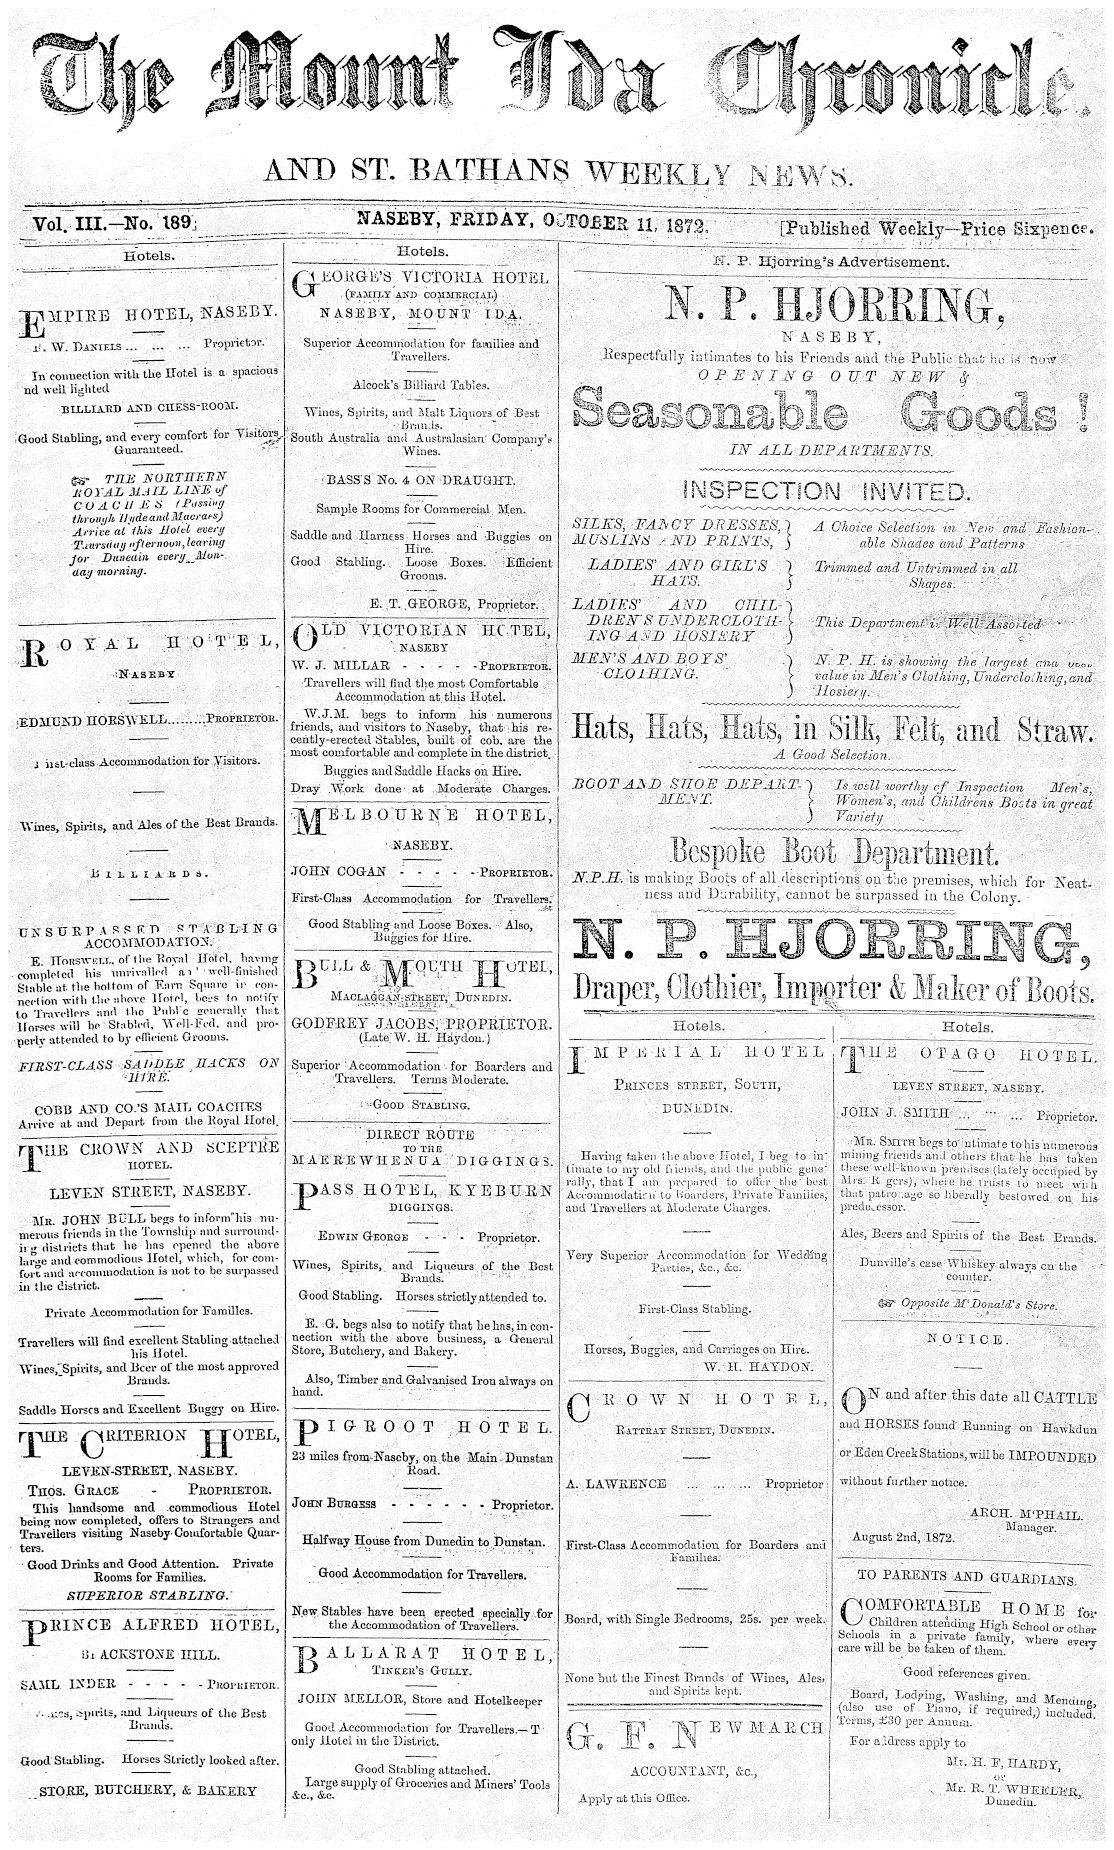 The Mount Ida Chronicle,
AND ST. BATHANS WEEKLY NEWS.
Vol. III.—No. 189.
NASEBY, FRIDAY, OCTOBER 11, 1872.
[Published Weekly—Price Sixpence.
Hotels.
EMPIRE HOTEL, NASEBY.
W. DANIELS ... ... ... Proprietor.
In connection with the Hotel is a spacious
nd well lighted
BILLIARD AND CHESS-ROOM.
Good Stabling, and every comfort for Visitors
Guaranteed.
☞ THE NORTHERN
ROYAL MAIL LINE of
COACHES (Passing
through Hyde and Macraes)
Arrive at this Hotel every
Thursday afternoon, leaving
for Dunedin every Mon-
day morning.
ROYAL HOTEL,
NASEBY
EDMUND HORSWELL.........PROPRIETOR.
First-class Accommodation for Visitors.
Wines, Spirits, and Ales of the Best Brands.
BILLIARDS.
UNSURPASSED STABLING
ACCOMMODATION.
E. HORSWELL, of the Royal Hotel, having
completed his unrivalled and well-finished
Stable at the bottom of Earn Square in con-
nection with the above Hotel, begs to notify
to Travellers and the Public generally that
Horses will be Stabled, Well-Fed, and pro-
perly attended to by efficient Grooms.
FIRST-CLASS SADDLE HACKS ON
HIRE.
COBB AND CO.'S MAIL COACHES
Arrive at and Depart from the Royal Hotel.
THE CROWN AND SCEPTRE
HOTEL.
LEVEN STREET, NASEBY.
MR. JOHN BULL begs to inform his nu-
merous friends in the Township and surround-
ing districts that he has opened the above
large and commodious Hotel, which, for com-
fort and accommodation is not to be surpassed
in the district.
Private Accommodation for Families.
Travellers will find excellent Stabling attached
his Hotel.
Wines, Spirits, and Beer of the most approved
Brands.
Saddle Horses and Excellent Buggy on Hire.
THE CRITERION HOTEL,
LEVEN-STREET, NASEBY.
THOS. GRACE - PROPRIETOR.
This handsome and commodious Hotel
being now completed, offers to Strangers and
Travellers visiting Naseby Comfortable Quar-
ters.
Good Drinks and Good Attention. Private
Rooms for Families.
SUPERIOR STABLING.
PRINCE ALFRED HOTEL,
BLACKSTONE HILL.
SAML INDER - - - - - PROPRIETOR.
Spirits, and Liqueurs of the Best
Brands.
Good Stabling. Horses Strictly looked after.
STORE, BUTCHERY, & BAKERY
Hotels.
GEORGE'S VICTORIA HOTEL
(FAMILY AND COMMERCIAL)
NASEBY, MOUNT IDA.
Superior Accommodation for families and
Travellers.
Alcock's Billiard Tables.
Wines, Spirits, and Malt Liquors of Best
Brands.
South Australia and Australasian Company's
Wines.
BASS'S No. 4 ON DRAUGHT.
Sample Rooms for Commercial Men.
Saddle and Harness Horses and Buggies on
Hire.
Good Stabling. Loose Boxes. Efficient
Grooms.
E. T. GEORGE, Proprietor.
OLD VICTORIAN HOTEL,
NASEBY
W. J. MILLAR - - - - - PROPRIETOR.
Travellers will find the most Comfortable
Accommodation at this Hotel.
W.J.M. begs to inform his numerous
friends, and visitors to Naseby, that his re-
cently-erected Stables, built of cob, are the
most comfortable and complete in the district.
Buggies and Saddle Hacks on Hire.
Dray Work done at Moderate Charges.
MELBOURNE HOTEL,
NASEBY.
JOHN COGAN - - - - - PROPRIETOR.
First-Class Accommodation for Travellers.
Good Stabling and Loose Boxes. Also,
Buggies for Hire.
BULL & MOUTH HOTEL,
MACLAGGAN STREET, DUNEDIN.
GODFREY JACOBS, PROPRIETOR.
(Late W. H. Haydon.)
Superior Accommodation for Boarders and
Travellers. Terms Moderate.
GOOD STABLING.
DIRECT ROUTE
TO THE
MAEREWHENUA DIGGINGS.
PASS HOTEL, KYEBURN
DIGGINGS.
EDWIN GEORGE - - - Proprietor.
Wines, Spirits, and Liqueurs of the Best
Brands.
Good Stabling. Horses strictly attended to.
E. G. begs also to notify that he has, in con-
nection with the above business, a General
Store, Butchery, and Bakery.
Also, Timber and Galvanised Iron always on
hand.
PIGROOT HOTEL.
23 miles from Naseby, on the Main Dunstan
Road.
JOHN BURGESS - - - - - - Proprietor.
Halfway House from Dunedin to Dunstan.
Good Accommodation for Travellers.
New Stables have been erected specially for
the Accommodation of Travellers.
BALLARAT HOTEL,
TINKER'S GULLY.
JOHN MELLOR, Store and Hotelkeeper
Good Accommodation for Travellers.—T
only Hotel in the District.
Good Stabling attached.
Large supply of Groceries and Miners' Tools
&c., &c.
N. P. Hjorring's Advertisement.
N. P. HJORRING,
NASEBY,
Respectfully intimates to his Friends and the Public that he is now
OPENING OUT NEW &
Seasonable Goods!
IN ALL DEPARTMENTS.
INSPECTION INVITED.
SILKS, FANCY DRESSES, } A Choice Selection in New and Fashion-
MUSLINS AND PRINTS, } able Shades and Patterns
LADIES' AND GIRL'S } Trimmed and Untrimmed in all
HATS. } Shapes.
LADIES' AND CHIL-
DREN'S UNDERCLOTH- } This Department is Well Assorted
ING AND HOSIERY
MEN'S AND BOYS' } N. P. H. is showing the largest and
CLOTHING. } value in Men's Clothing, Underclothing, and
Hosiery.
Hats, Hats, Hats, in Silk, Felt, and Straw.
A Good Selection.
BOOT AND SHOE DEPART- } Is well worthy of Inspection Men's,
MENT. } Women's, and Childrens Boots in great
Variety
Bespoke Boot Department.
N.P.H. is making Boots of all descriptions on the premises, which for Neat-
ness and Durability, cannot be surpassed in the Colony.
N. P. HJORRING,
Draper, Clothier, Importer & Maker of Boots.
Hotels.
IMPERIAL HOTEL
PRINCES STREET, SOUTH,
DUNEDIN.
Having taken the above Hotel, I beg to in-
timate to my old friends, and the public gene-
rally, that I am prepared to offer the best
Accommodation to Boarders, Private Families,
and Travellers at Moderate Charges.
Very Superior Accommodation for Wedding
Parties, &c., &c.
First-Class Stabling.
Horses, Buggies, and Carriages on Hire.
W. H. HAYDON.
CROWN HOTEL,
RATTRAY STREET, DUNEDIN.
A. LAWRENCE ... ... ... Proprietor
First-Class Accommodation for Boarders and
Families.
Board, with Single Bedrooms, 25s. per week.
None but the Finest Brands of Wines, Ales,
and Spirits kept.
G. F. NEWMARCH
ACCOUNTANT, &c.,
Apply at this Office.
Hotels.
THE OTAGO HOTEL.
LEVEN STREET, NASEBY.
JOHN J. SMITH ... ... ... Proprietor.
MR. SMITH begs to intimate to his numerous
mining friends and others that he has taken
these well-known premises (lately occupied by
Mrs. Rogers), where he trusts to meet with
that patronage so liberally bestowed on his
predecessor.
Ales, Beers and Spirits of the Best Brands.
Dunville's case Whiskey always on the
counter.
☞ Opposite M'Donald's Store.
NOTICE.
ON and after this date all CATTLE
and HORSES found Running on Hawkdun
or Eden Creek Stations, will be IMPOUNDED
without further notice.
ARCH. M'PHAIL.
Manager.
August 2nd, 1872.
TO PARENTS AND GUARDIANS.
COMFORTABLE HOME for
Children attending High School or other
Schools in a private family, where every
care will be be taken of them.
Good references given.
Board, Lodging, Washing, and Mending,
(also use of Piano, if required,) included.
Terms, £30 per Annum.
For address apply to
Mr. H. F, HARDY,
or
Mr. R. T. WHEELER,
Dunedin.